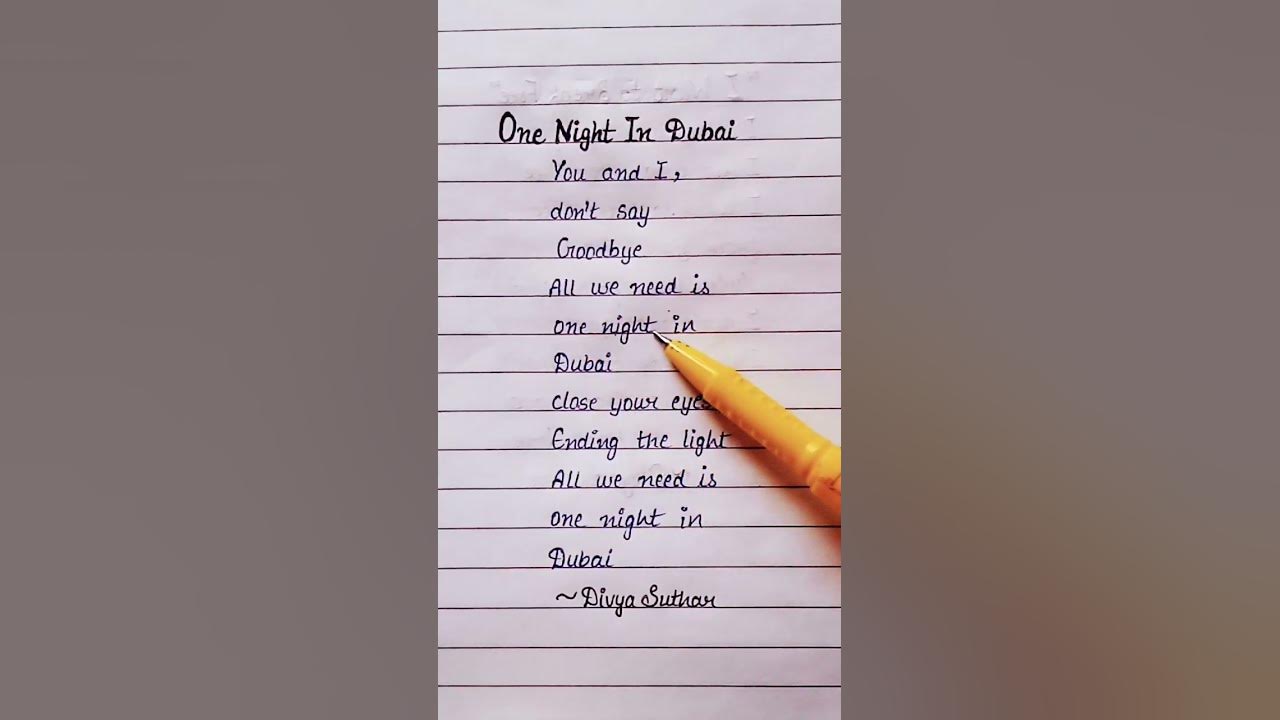 One Night In Dubai
You and I,
don't say
Goodbye
All we need is
one night in
Dubai
close your eyes
Ending the light
All we need is
one night in
Dubai
~Divya Suthar